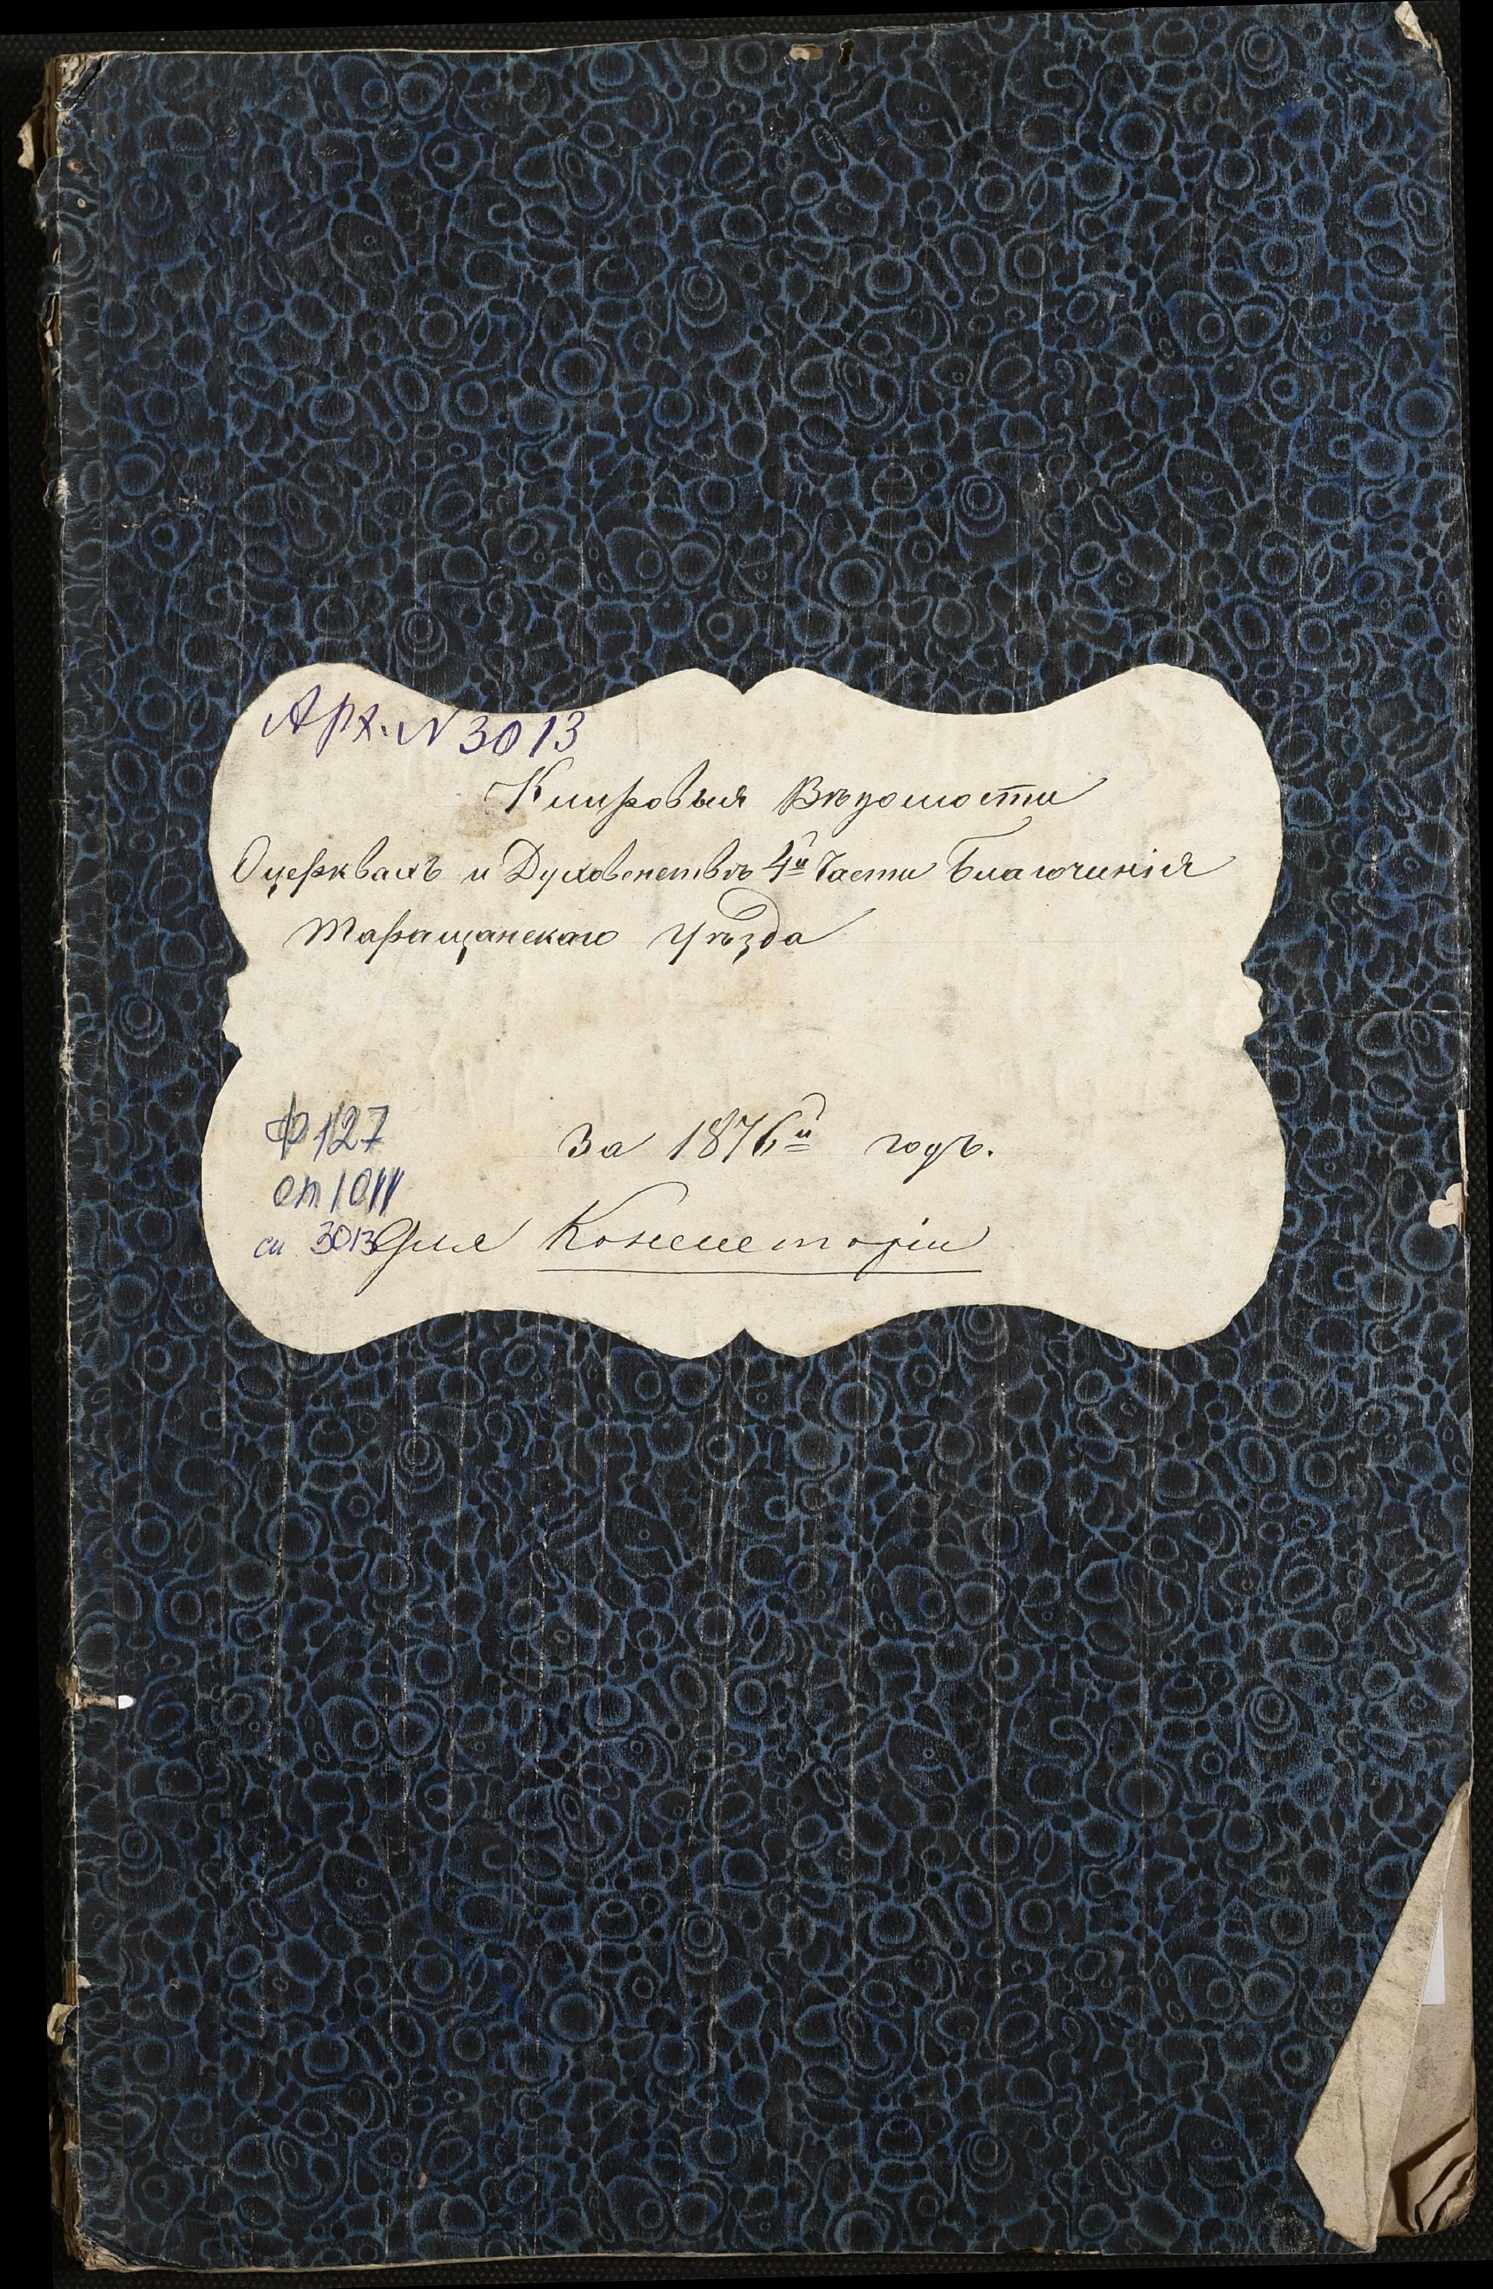 Арх. N 3013
Клировыя Вѣдомости
О церквахъ и Духовенствѣ 4й Части Благочинія
Таращанскаго Уѣзда
Ф 127
за 1876й годъ.
оп 1011
сп 3013
Для Консисторіи